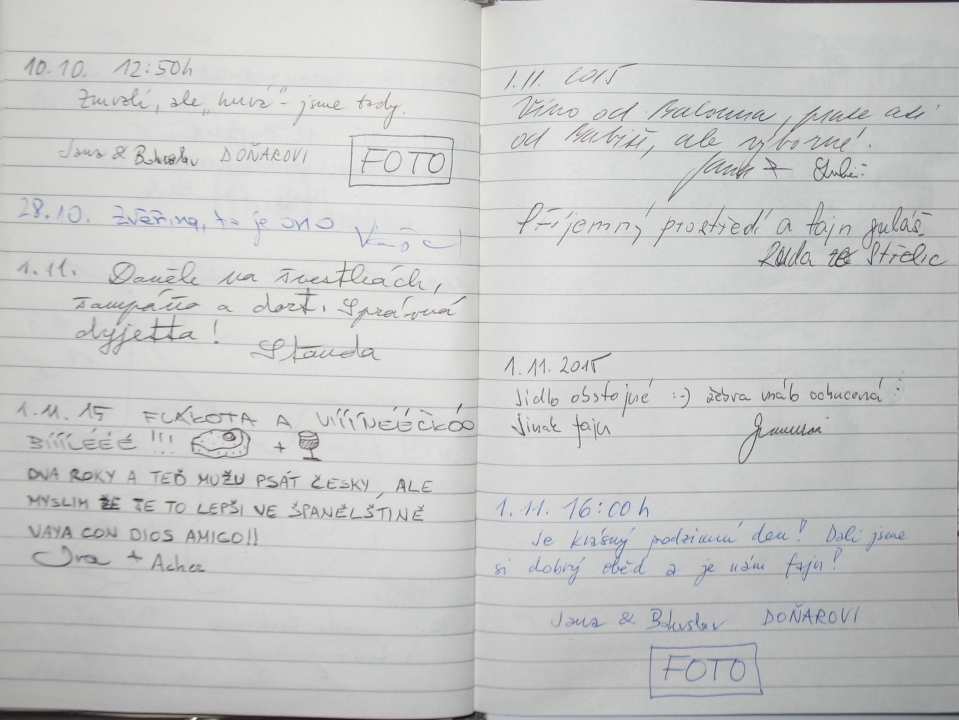 10.10. 12:50h
Zmrzlí, ale „hurá" - jsme tady.
Jana & Bohuslav DOŇAROVI
FOTO
28.10. Zvěřina, to je ono
1.11. Daněk na švestkách,
šampáňo a dort. Správná
dyjetta!
Standa
1.11.15 FLÁKOTA A VÍÍÍNÉÉČKÓÓ
BÍÍÍLÉÉÉ !!! +
DVA ROKY A TEĎ MUŽU PSÁT ČESKY, ALE
MYSLIM ŽE JE TO LEPŠI VE ŠPANĚLŠTINĚ
VAYA CON DIOS AMIGO!!
+
1.11. 2015
Víno od Balouna, prase asi
od Babiše, ale výborné.
Příjemný prostředí a fajn guláš
Ruda ze Střelic
1.11. 2015
Jídlo obstojné :-) žebra málo ochucená :
Jinak fajn
1.11. 16:00h
Je krásný podzimní den! Dali jsme
si dobrý oběd a je nám fajn!
Jana & Bohuslav DOŇAROVI
FOTO